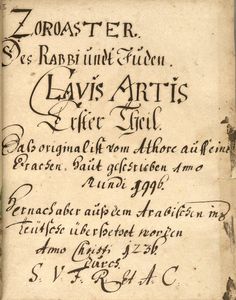 ZOROASTER.
Des RABBI undt Juden.
CLAVIS ARTIS
Erster Theil.
Daß original ist vom Athore auff eine
Drachen haut geschrieben Anno
Mundi 1996.
Hernach aber auß dem Arabischen ins
Teütsche übersetzet worden
Anno Christi 1236.
Durch.
S. V. F. R. et A. C.